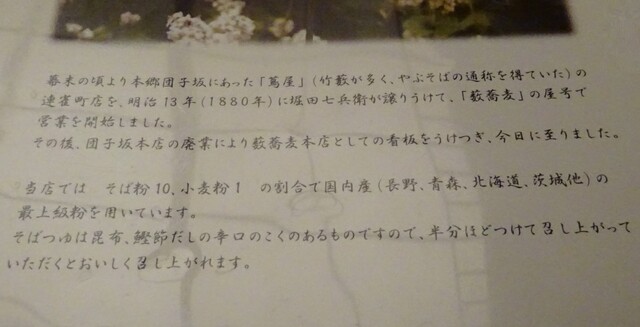 幕末の頃より本郷団子坂にあった「蔦屋」(竹藪が多く、やぶそばの通称を得ていた)の
連雀町店を、明治13年(1880年)に堀田七兵衛が譲りうけて、「藪蕎麦」の屋号で
営業を開始しました。
その後、団子坂本店の廃業により藪蕎麦本店としての看板をうけつぎ、今日に至りました。
当店では そば粉10、小麦粉1 の割合で国内産(長野、青森、北海道、茨城他)の
最上級粉を用いています。
そばつゆは昆布、鰹節だしの辛口のこくのあるものですので、半分ほどつけて召し上がって
いただくとおいしく召し上がれます。